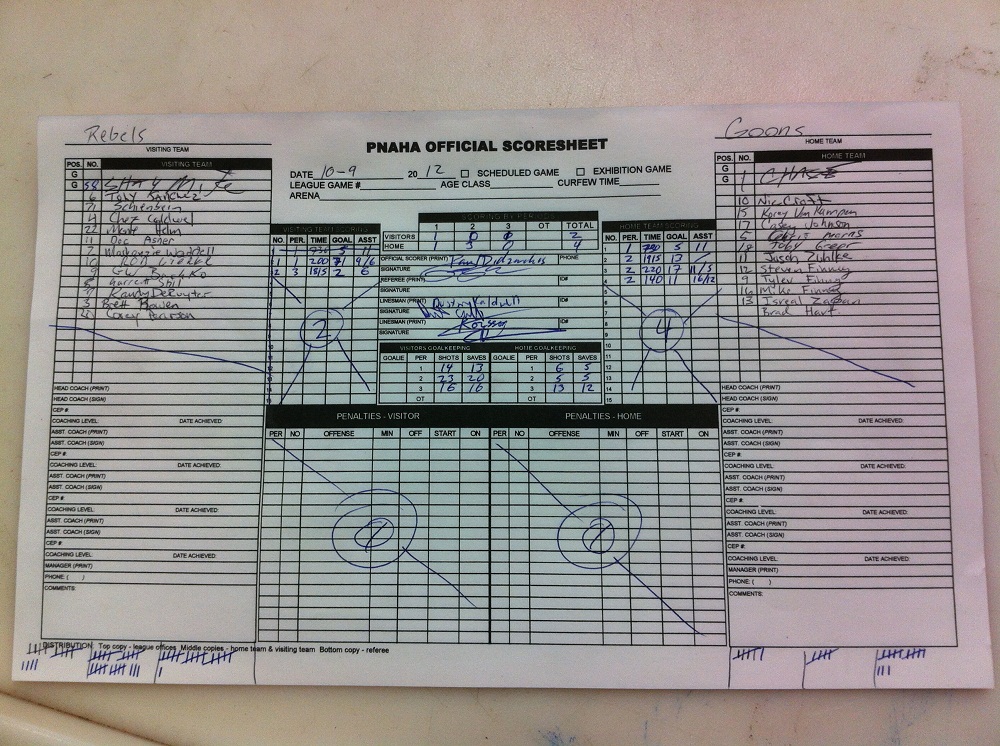 Rebels
VISITING TEAM
Goons
HOME TEAM
PNAHA OFFICIAL SCORESHEET
DATE 10-9 20 12 SCHEDULED GAME EXHIBITION GAME
LEAGUE GAME # AGE CLASS CURFEW TIME
ARENA
POS. NO. VISITING TEAM
G
G 58
6 Tony Sanchez
71
4 Chez Caldwel
22 Monte Helm
11 Doc Asher
7
10
9
Garrett
Randy DeRuyter
3 Brett Bowen
Corey Pearson
HEAD COACH (PRINT)
HEAD COACH (SIGN)
CEP #:
COACHING LEVEL: DATE ACHIEVED:
ASST. COACH (PRINT)
ASST. COACH (SIGN)
CEP #:
COACHING LEVEL: DATE ACHIEVED:
ASST. COACH (PRINT)
ASST. COACH (SIGN)
CEP #:
COACHING LEVEL: DATE ACHIEVED:
ASST. COACH (PRINT)
ASST. COACH (SIGN)
CEP #:
COACHING LEVEL: DATE ACHIEVED:
MANAGER (PRINT)
PHONE: ( )
COMMENTS:
VISITING TEAM SCORING
NO. PER. TIME GOAL ASST
1 1 200 71 9/6
2 3 1815 2 6
2
SCORING BY PERIODS
1 2 3 OT TOTAL
VISITORS 1 0 0 2
HOME 1 3 0 4
OFFICIAL SCORER (PRINT) PHONE
SIGNATURE
REFEREE (PRINT) ID#
SIGNATURE
LINESMAN (PRINT) ID#
SIGNATURE
LINESMAN (PRINT) ID#
SIGNATURE
VISITORS GOALKEEPING HOME GOALKEEPING
GOALIE PER SHOTS SAVES GOALIE PER SHOTS SAVES
1 14 13 1 6 5
2 23 20 2 5 5
3 16 16 3 13 12
OT OT
HOME TEAM SCORING
NO. PER. TIME GOAL ASST
1 1 730 5 11
2 2 1915 13
3 2 220 17 11/5
4 2 140 11 16/12
4
POS. NO. HOME TEAM
G
G 1 CHASE
10 Nic Croft
15 Korey Van Kampen
17 Casey Johnson
5
18 Toby Greer
11 Jason Zuhlke
12 Steven Finney
9 Tyler Finney
16 Mike Finney
13 Isreal
Brad Hart
HEAD COACH (PRINT)
HEAD COACH (SIGN)
CEP #:
COACHING LEVEL: DATE ACHIEVED:
ASST. COACH (PRINT)
ASST. COACH (SIGN)
CEP #:
COACHING LEVEL: DATE ACHIEVED:
ASST. COACH (PRINT)
ASST. COACH (SIGN)
CEP #:
COACHING LEVEL: DATE ACHIEVED:
ASST. COACH (PRINT)
ASST. COACH (SIGN)
CEP #:
COACHING LEVEL: DATE ACHIEVED:
MANAGER (PRINT)
PHONE: ( )
COMMENTS:
PENALTIES - VISITOR PENALTIES - HOME
PER NO OFFENSE MIN OFF START ON PER NO OFFENSE MIN OFF START ON
DISTRIBUTION: Top copy - league offices Middle copies - home team & visiting team Bottom copy - referee